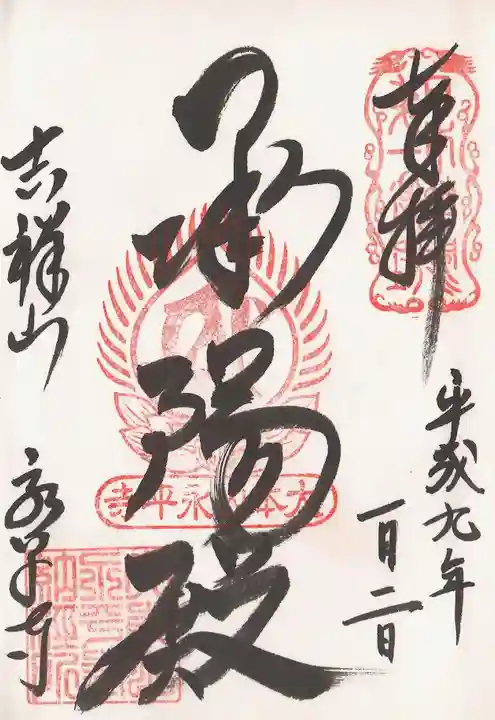 奉拝
平成九年
一月二日
承陽殿
大本山永平寺
吉祥山
永平寺